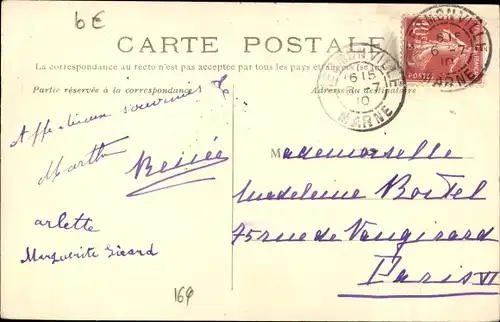 6€
CARTE POSTALE
La correspondance au recto n'est pas acceptée par tous les pays
Partie réservée à la correspondance
Adresse du destinataire
6 15
7
10
MARNE
6 - 7
10
MARNE
POSTES
Affectueux souvenirs de
Marthe
Renée
arlette
Marguerite Sicard
Mademoiselle
Madeleine Bortel
75 rue de Vaugirard
Paris VI
169